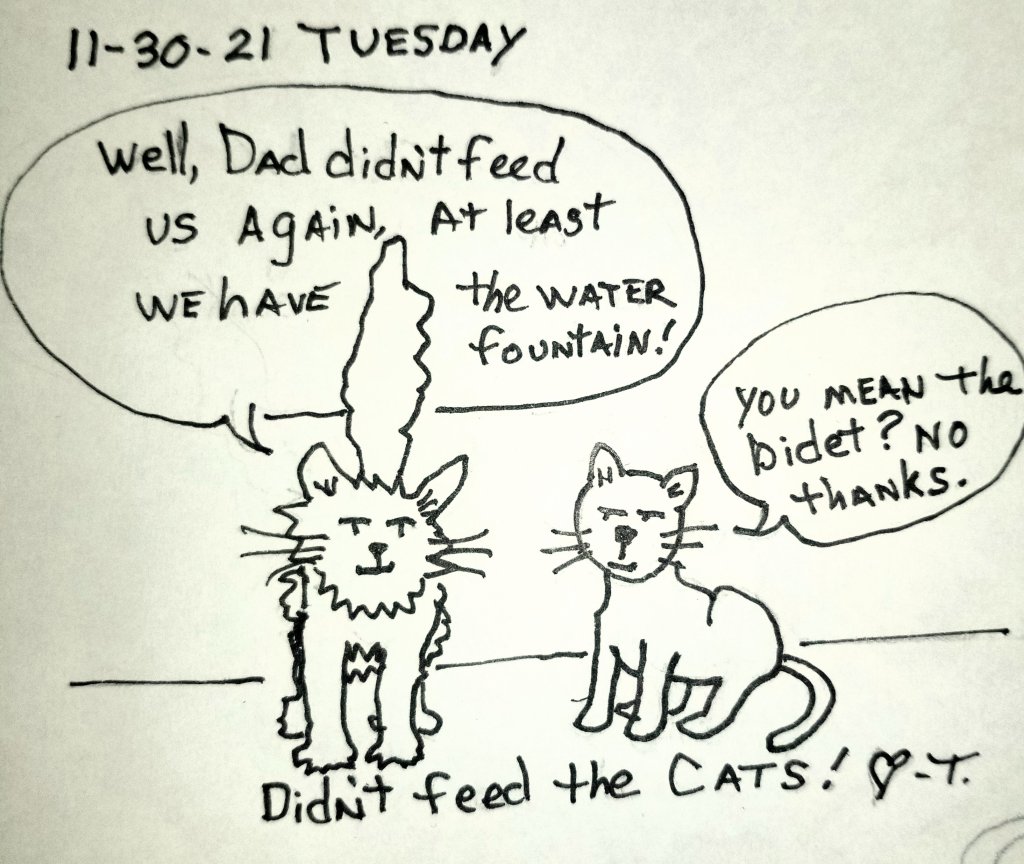 11-30-21 TUESDAY
Well, Dad didn't feed
us AgAiN, At leAst
WE hAVE the WATER
fountAiN!
you MEAN the
bidet? NO
thANks.
Didn't feed the CATS! ♡-T.